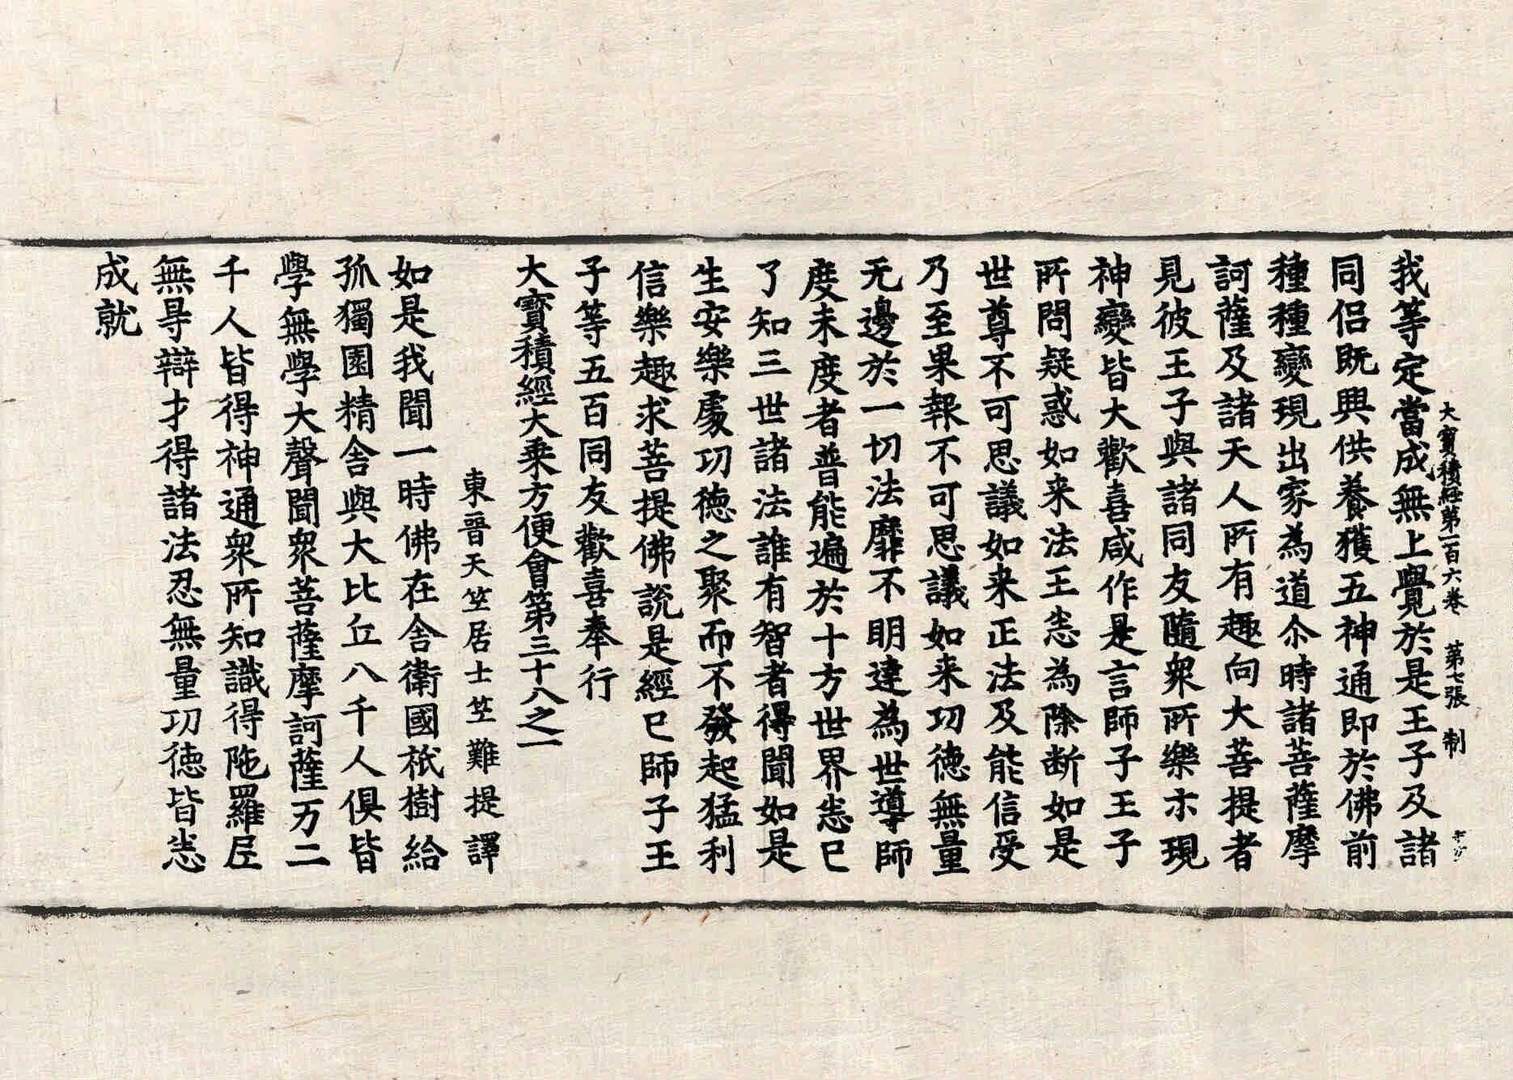 大寶積經第一百六卷　第七張　制
我等定當成無上覺於是王子及諸
同侶既興供養獲五神通即於佛前
種種變現出家為道尒時諸菩薩摩
訶薩及諸天人所有趣向大菩提者
見彼王子與諸同友隨衆所樂示現
神變皆大歡喜咸作是言師子王子
所問疑惑如来法王悉為除断如是
世尊不可思議如来正法及能信受
乃至果報不可思議如来功德無量
无邊於一切法靡不明達為世導師
度未度者普能遍於十方世界悉已
了知三世諸法誰有智者得聞如是
生安樂處功德之聚而不發起猛利
信樂趣求菩提佛說是經已師子王
子等五百同友歡喜奉行
大寶積經大乗方便會第三十八之一
東晉天竺居士竺難提譯
如是我聞一時佛在舍衛國祇樹給
孤獨園精舎與大比丘八千人俱皆
學無學大聲聞衆菩薩摩訶薩万二
千人皆得神通衆所知識得陁羅尼
無㝵辯才得諸法忍無量功德皆悉
成就